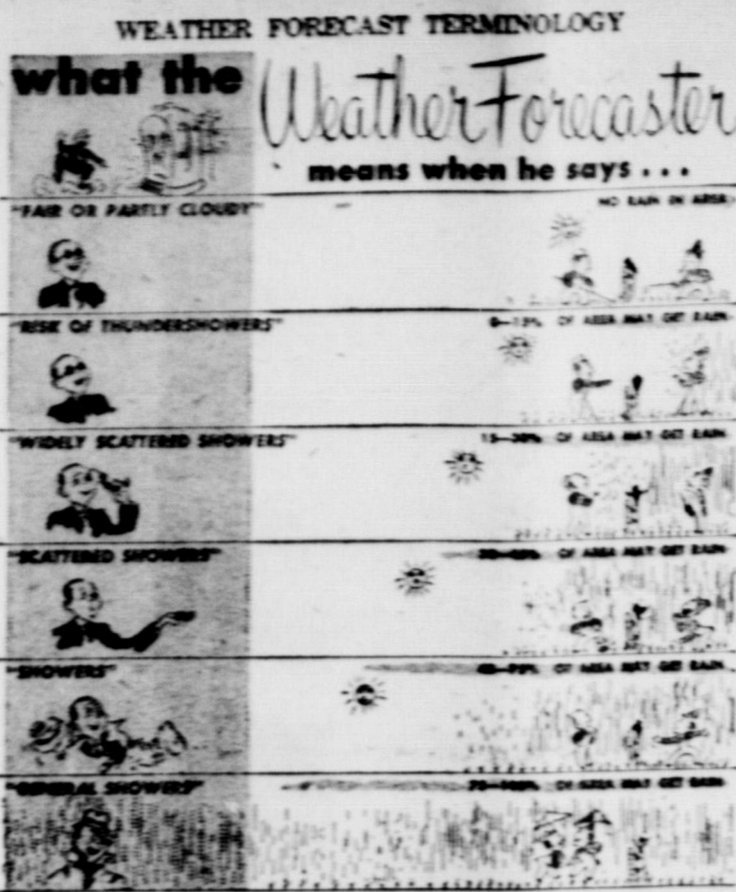 WEATHER FORECAST TERMINOLOGY
what the Weather Forecaster
means when he says...
"FAIR OR PARTLY CLOUDY"
NO RAIN IN AREA
"RISK OF THUNDERSHOWERS"
0—15% OF AREA MAY GET RAIN
"WIDELY SCATTERED SHOWERS"
15—30% OF AREA MAY GET RAIN
"SCATTERED SHOWERS"
OF AREA MAY GET RAIN
"SHOWERS"
OF AREA MAY GET RAIN
"GENERAL SHOWERS"
OF AREA MAY GET RAIN